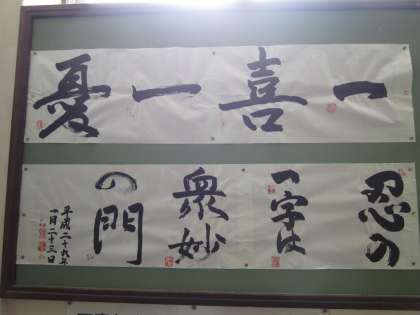 一喜一憂
忍の
一字は
衆妙
の門
平成二十九年
一月二十三日